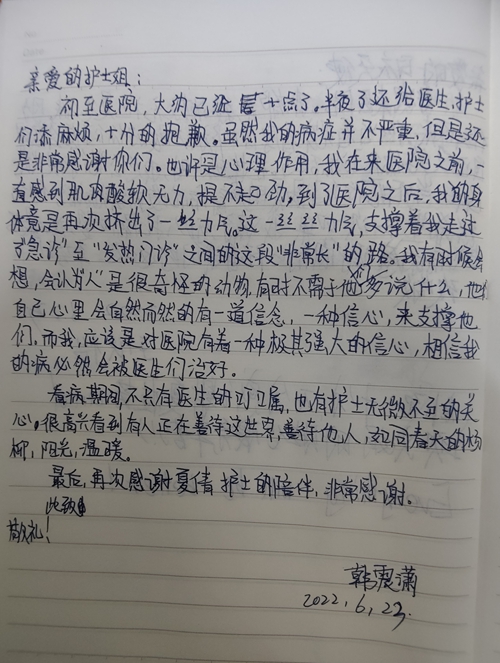 亲爱的护士姐：
初至医院，大约已经是十点了。半夜了还给医生、护士
们添麻烦，十分的抱歉。虽然我的病症并不严重，但是还
是非常感谢你们。也许是心理作用，我在来医院之前，一
直感到肌肉酸软无力，提不起劲。到了医院之后，我的身
体竟是再次挤出了一丝力气。这一丝丝力气，支撑着我走过
了“急诊”至“发热门诊”之间的这段“非常长”的路。我有时候会
想，会认为“人”是很奇怪的动物，有时不需于他多说什么，他们
自己心里会自然而然的有一道信念，一种信心，来支撑他
们。而我，应该是对医院有着一种极其强大的信心，相信我
的病必然会被医生们治好。
看病期间，不只有医生的叮嘱，也有护士无微不至的关
心。很高兴看到有人正在善待这世界，善待他人，如同春天的杨
柳，阳光，温暖。
最后，再次感谢夏倩护士的陪伴，非常感谢。
此致
敬礼！
韩震潇
2022.6.23.